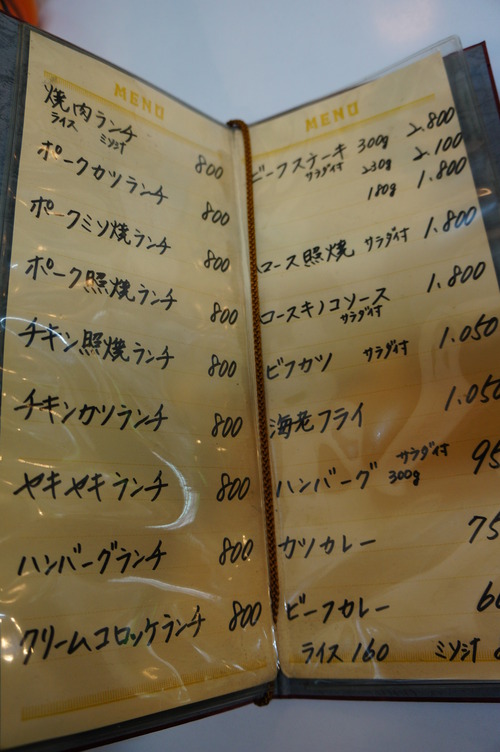 MENU
焼肉ランチ 800
ライス ミソ汁
ポークカツランチ 800
ポークミソ焼ランチ 800
ポーク照焼ランチ 800
チキン照焼ランチ 800
チキンカツランチ 800
ヤキヤキランチ 800
ハンバーグランチ 800
クリームコロッケランチ 800
MENU
ビーフステーキ 300g 2.800
サラダ付 230g 2.100
180g 1.800
ロース照焼 サラダ付 1.800
ロースキノコソース 1.800
サラダ付
ビフカツ サラダ付 1.050
海老フライ 1.050
ハンバーグ サラダ付
300g
カツカレー
ビーフカレー
ライス 160 ミソ汁